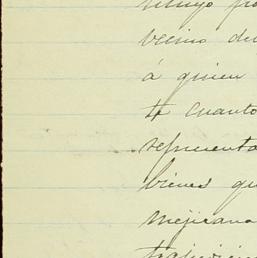 vecino de
á quien
te cuanto
representa
bienes qu
mejicana